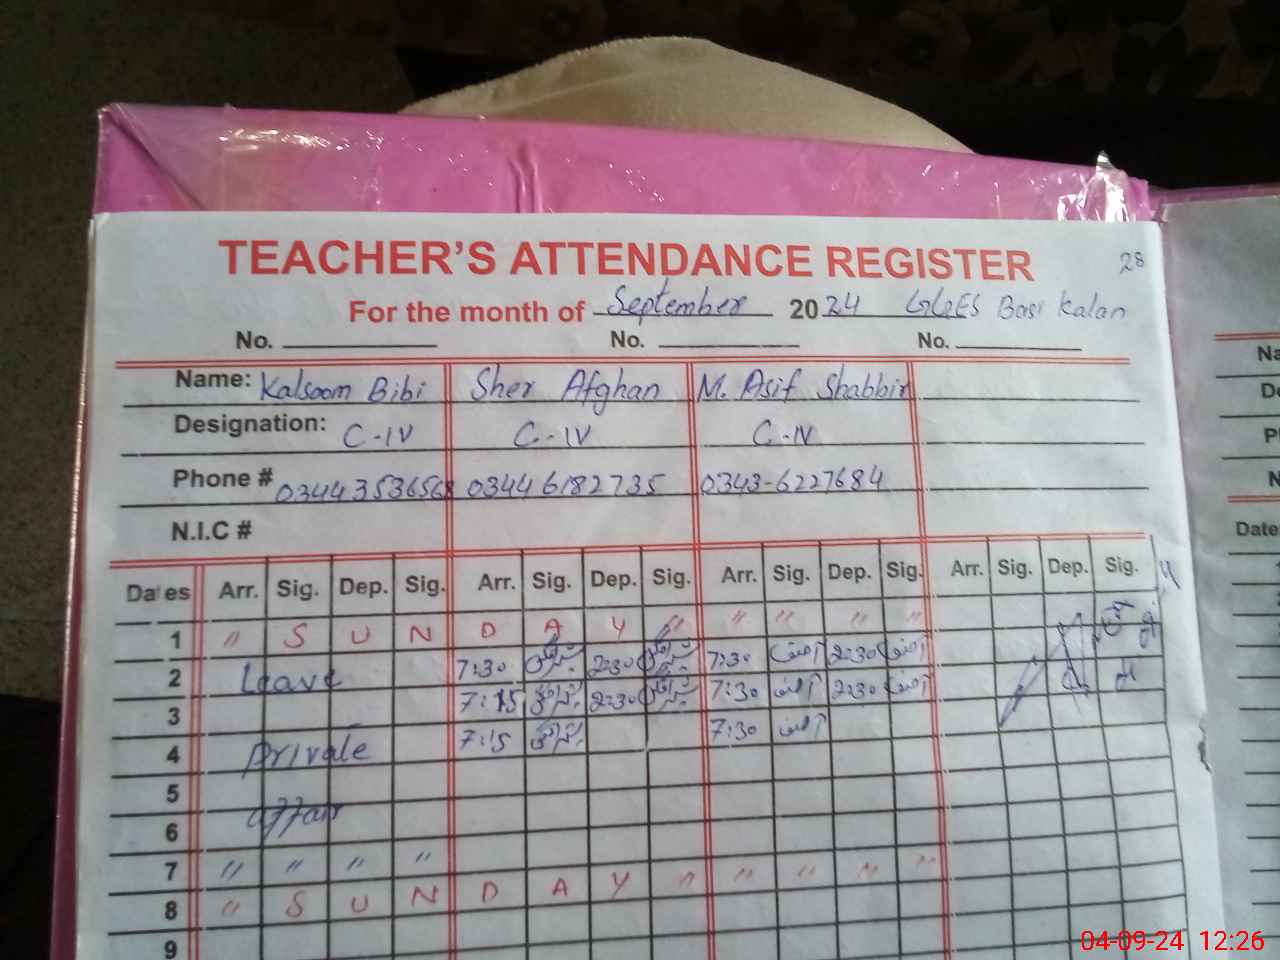 TEACHER'S ATTENDANCE REGISTER 28
For the month of September 2024 GGES Basi Kalan
No. No. No.
Name: Kalsoom Bibi Sher Afghan M. Asif Shabbir Na
Designation: C-IV C-IV C-IV De
Phone # 03443536568 03446182735 0343-6227684 Pl
N.I.C # N
Dates Arr. Sig. Dep. Sig. Arr. Sig. Dep. Sig. Arr. Sig. Dep. Sig. Arr. Sig. Dep. Sig. Date
1 " S U N D A Y " " " " "
2 Leave 7:30 2:30 7:30 آصف 2:30 آصف
3 7:15 2:30 7:30 آصف 2:30 آصف
4 Private 7:15 7:30 آصف
5
6 affair
7 " " " "
8 " S U N D A Y " " " " "
9
04-09-24 12:26